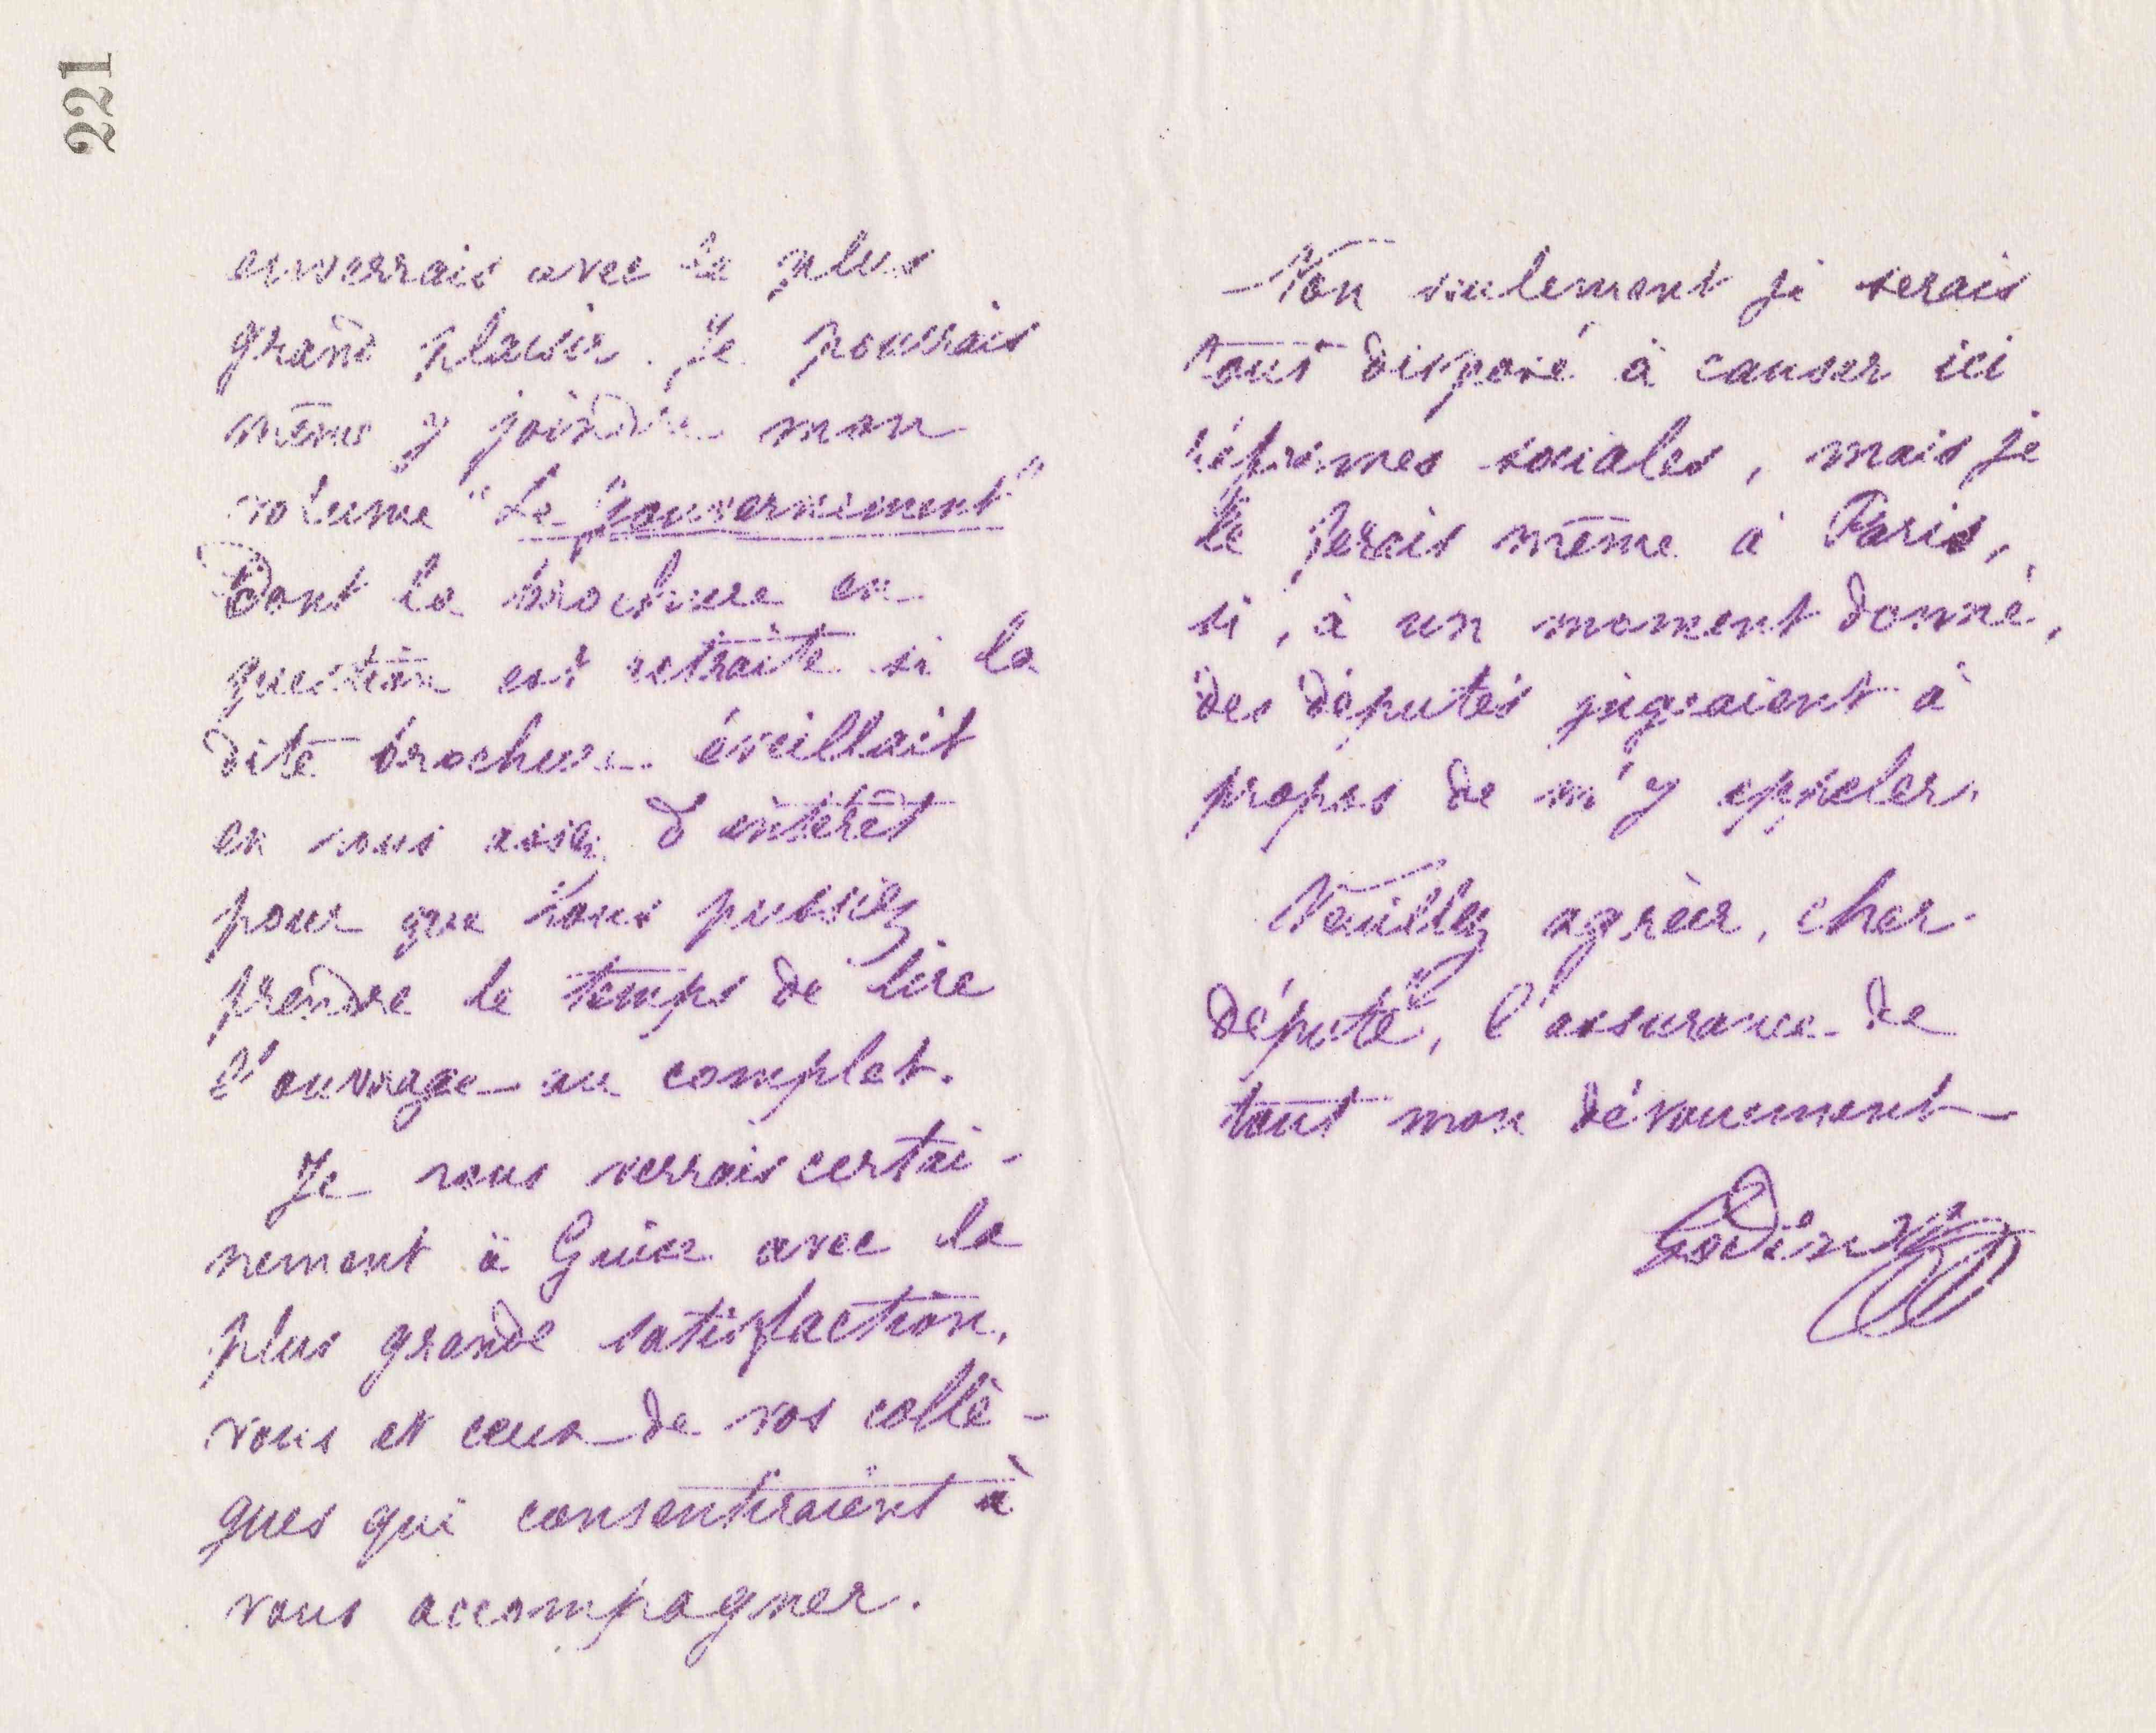 221
enverrais avec le plus
grand plaisir. Je pourrais
même y joindre mon
volume "Le gouvernement"
dont la brochure en
question est retraite si la
dite brochure éveillait
en vous assez d'intérêt
pour que vous pussiez
prendre le temps de lire
l'ouvrage au complet.
Je vous verrais certai-
nement à Guise avec la
plus grande satisfaction,
vous et ceux de vos collè-
gues qui consentiraient à
vous accompagner.
Non seulement je serais
tout disposé à causer ici
réformes sociales, mais je
le ferais même à Paris,
si, à un moment donné,
des députés jugeaient à
propos de m'y appeler.
Veuillez agréer, cher
député, l'assurance de
tout mon dévouement
Godin